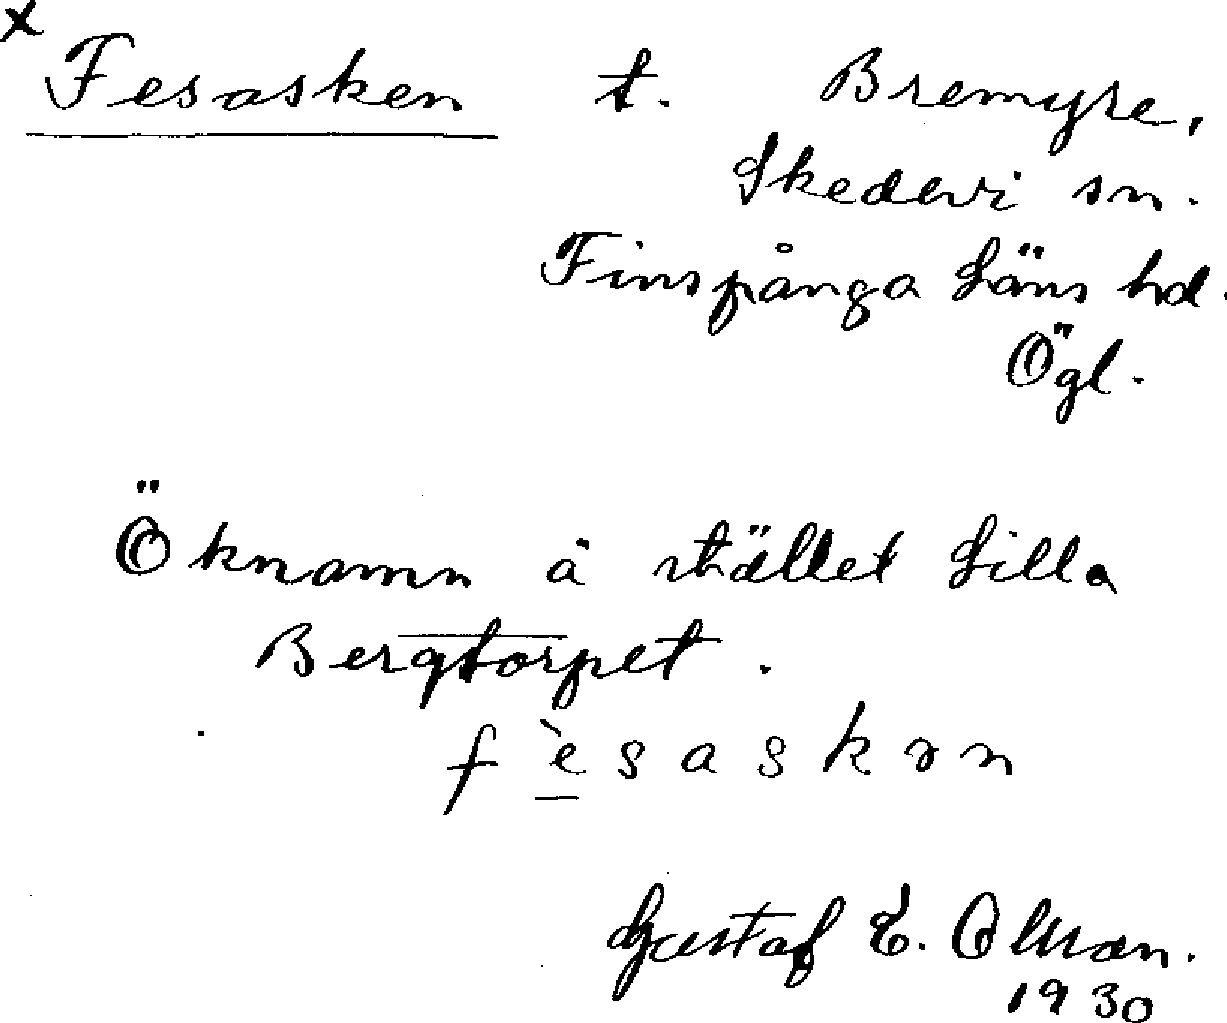 x
Fesasken t. Bremyre,
Skedevi sn.
Finspånga Läns hd.
Ögl.
Öknamn å stället Lilla
Bergtorpet.
fèsaskən
Gustaf E. Olsson.
1930